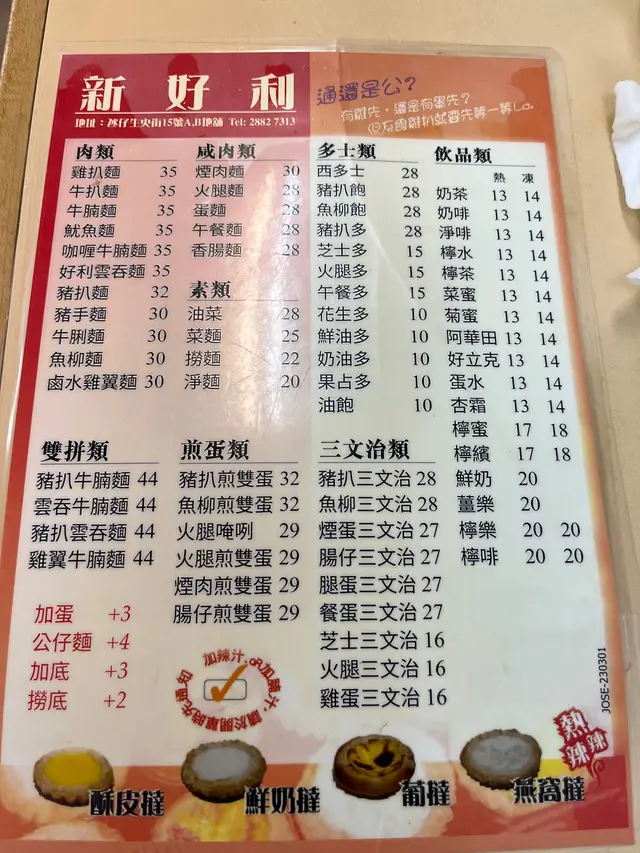 新好利
地址：氹仔生央街15號A,B地舖 Tel: 2882 7313
通還是公？
有雞先，還是有蛋先？
肉類
雞扒麵 35
牛扒麵 35
牛腩麵 35
魷魚麵 35
咖喱牛腩麵 35
好利雲吞麵 35
豬扒麵 32
豬手麵 30
牛脷麵 30
魚柳麵 30
鹵水雞翼麵 30
咸肉類
煙肉麵 30
火腿麵 28
蛋麵 28
午餐麵 28
香腸麵 28
素類
油菜 28
菜麵 25
撈麵 22
淨麵 20
多士類
西多士 28
豬扒飽 28
魚柳飽 28
豬扒多 28
芝士多 15
火腿多 15
午餐多 15
花生多 10
鮮油多 10
奶油多 10
果占多 10
油飽 10
飲品類
熱 凍
奶茶 13 14
奶啡 13 14
淨啡 13 14
檸水 13 14
檸茶 13 14
菜蜜 13 14
菊蜜 13 14
阿華田 13 14
好立克 13 14
蛋水 13 14
杏霜 13 14
檸蜜 17 18
檸繽 17 18
鮮奶 20
薑樂 20
檸樂 20 20
檸啡 20 20
雙拼類
豬扒牛腩麵 44
雲吞牛腩麵 44
豬扒雲吞麵 44
雞翼牛腩麵 44
加蛋 +3
公仔麵 +4
加底 +3
撈底 +2
煎蛋類
豬扒煎雙蛋 32
魚柳煎雙蛋 32
火腿唵咧 29
火腿煎雙蛋 29
煙肉煎雙蛋 29
腸仔煎雙蛋 29
加辣汁 OR 加腩汁，請於開單時先通知
三文治類
豬扒三文治 28
魚柳三文治 28
煙蛋三文治 27
腸仔三文治 27
腿蛋三文治 27
餐蛋三文治 27
芝士三文治 16
火腿三文治 16
雞蛋三文治 16
JOSE-230301
熱辣辣
酥皮撻
鮮奶撻
葡撻
燕窩撻